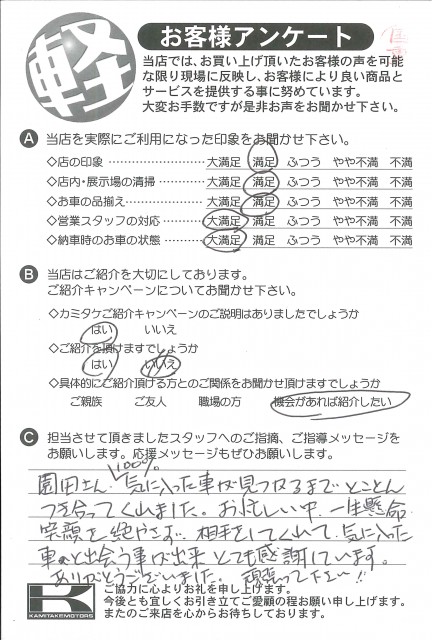 軽
お客様アンケート
当店では、お買い上げ頂いたお客様の声を可能
な限り現場に反映し、お客様により良い商品と
サービスを提供する事に努めています。
大変お手数ですが是非お声をお聞かせ下さい。
A 当店を実際にご利用になった印象をお聞かせ下さい。
◇店の印象 ………………… 大満足 満足 ふつう やや不満 不満
◇店内・展示場の清掃………… 大満足 満足 ふつう やや不満 不満
◇お車の品揃え……………… 大満足 満足 ふつう やや不満 不満
◇営業スタッフの対応………… 大満足 満足 ふつう やや不満 不満
◇納車時のお車の状態………… 大満足 満足 ふつう やや不満 不満
B 当店はご紹介を大切にしております。
ご紹介キャンペーンについてお聞かせ下さい。
◇カミタケご紹介キャンペーンのご説明はありましたでしょうか
はい いいえ
◇ご紹介を頂けますでしょうか
はい いいえ
◇具体的にご紹介頂ける方とのご関係をお聞かせ頂けますでしょうか
ご親族 ご友人 職場の方 機会があれば紹介したい
C 担当させて頂きましたスタッフへのご指摘、ご指導メッセージを
お願いします。応援メッセージもぜひお願いします。
1000%
園田さん 気に入った車が見つかるまでとことん
つき合ってくれました。お忙しい中、一生懸命
笑顔を絶やさず、相手をしてくれて、気に入った
車と出会う事が出来とても感謝しています。
ありがとうございました。頑張って下さい!!
K
KAMITAKEMOTORS
ご協力に心よりお礼を申し上げます。
今後とも宜しくお引き立てご愛顧の程お願い申し上げます。
またのご来店を心からお待ちしております。